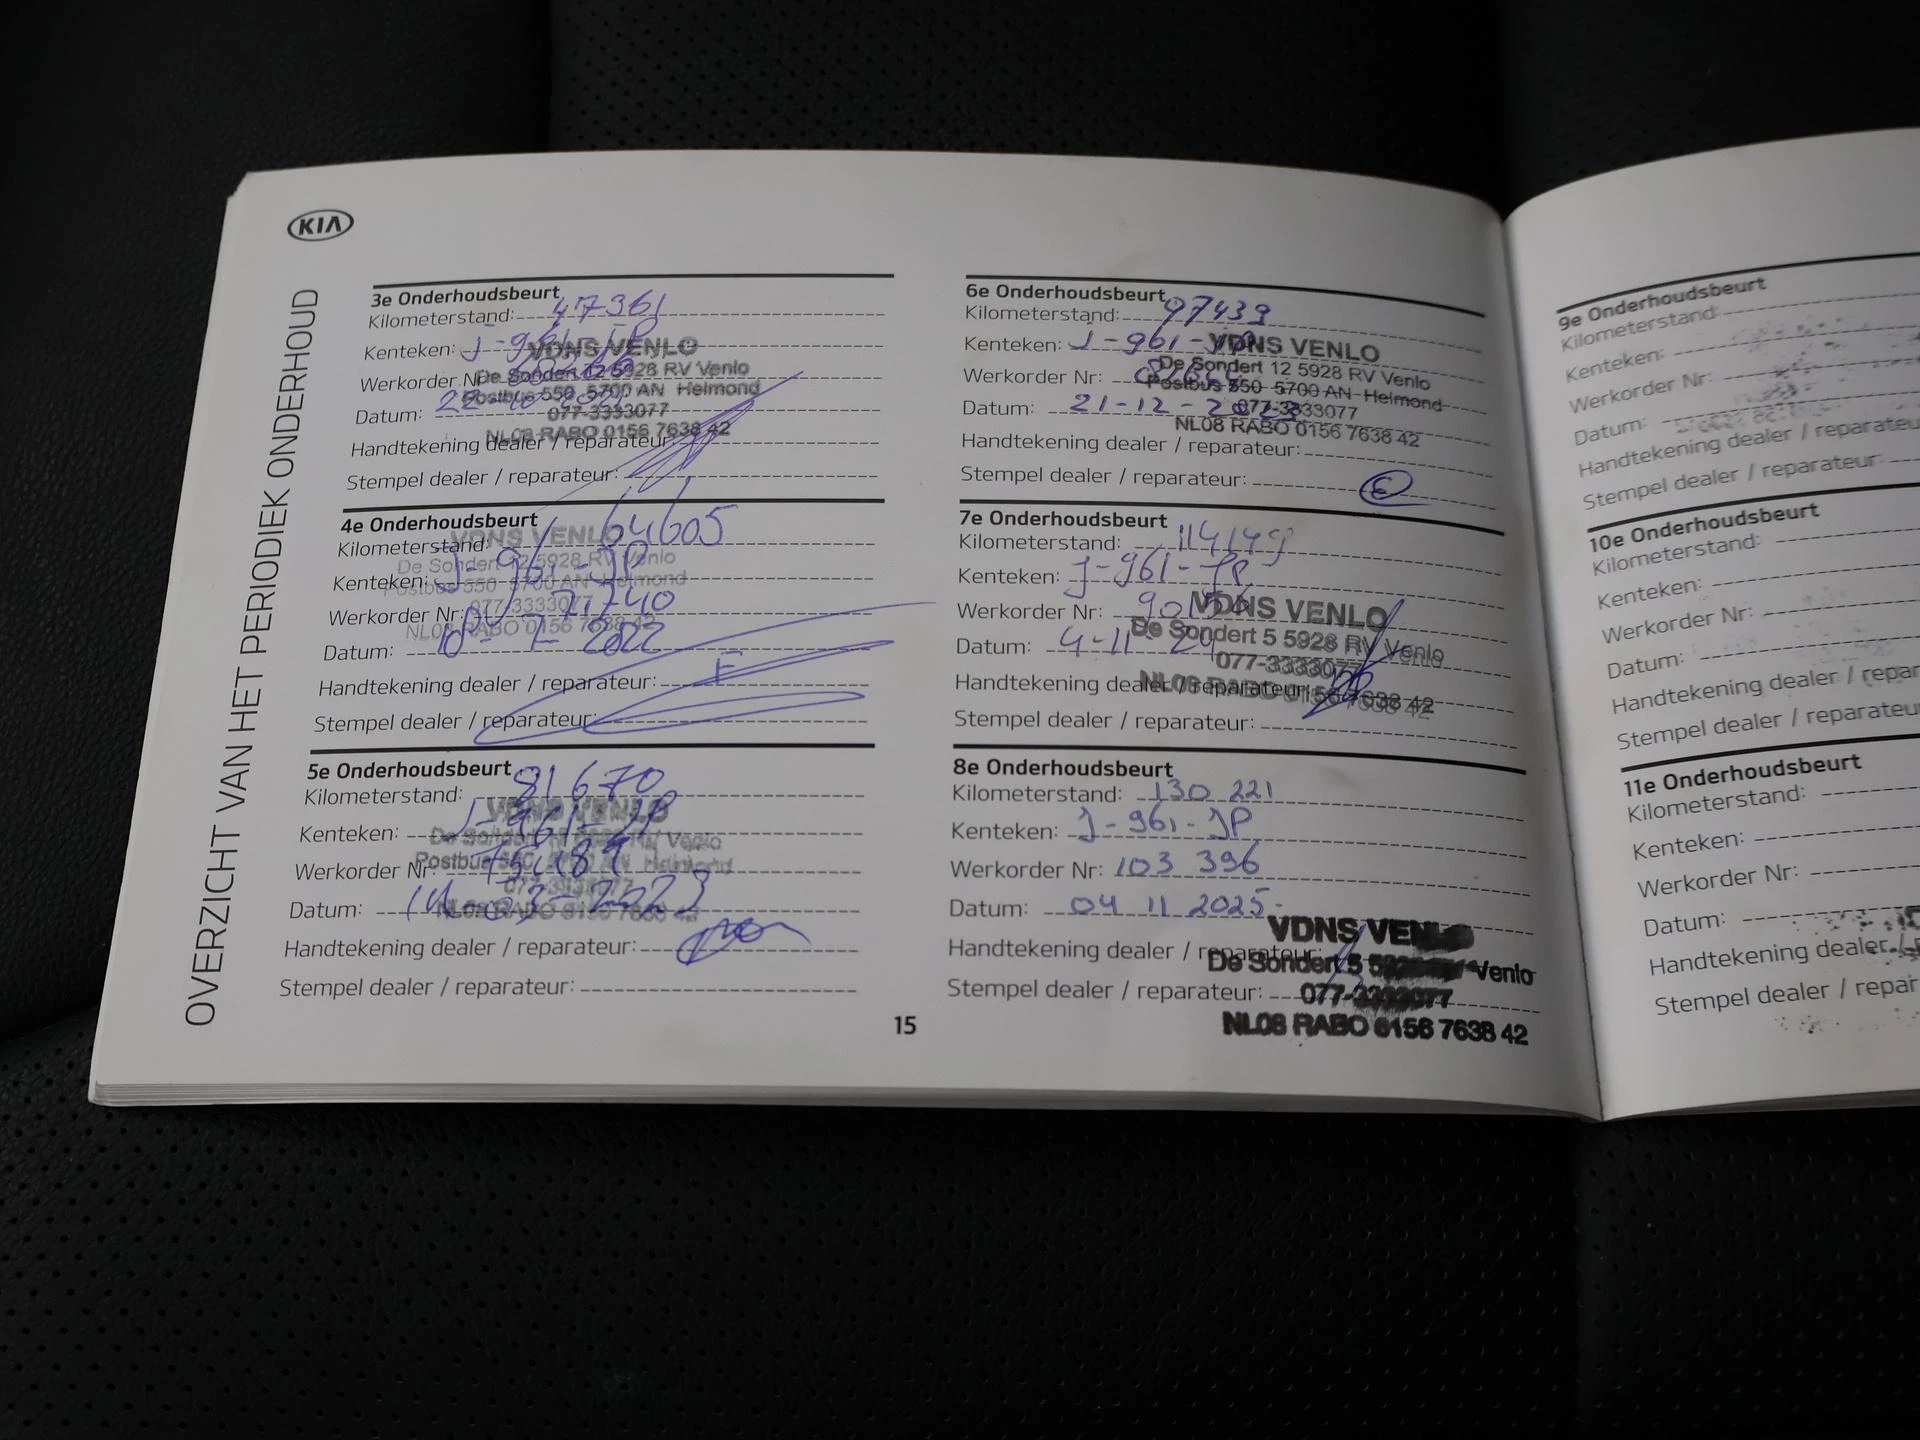 KIA
OVERZICHT VAN HET PERIODIEK ONDERHOUD
3e Onderhoudsbeurt
Kilometerstand: 47361
Kenteken: J-961-JP
Werkorder Nr:
Datum: 22-10-
Handtekening dealer / reparateur:
Stempel dealer / reparateur:
VDNS VENLO
De Sondert 12 5928 RV Venlo
Postbus 550 5700 AN Helmond
077-3333077
NL08 RABO 0156 7638 42
4e Onderhoudsbeurt
Kilometerstand: 64605
Kenteken: J-961-JP
Werkorder Nr: 71740
Datum: 2022
Handtekening dealer / reparateur:
Stempel dealer / reparateur:
VDNS VENLO
De Sondert 12 5928 RV Venlo
Postbus 550 5700 AN Helmond
077-3333077
NL08 RABO 0156 7638 42
5e Onderhoudsbeurt
Kilometerstand: 81670
Kenteken: J-961-JP
Werkorder Nr:
Datum: 14-03-2023
Handtekening dealer / reparateur:
Stempel dealer / reparateur:
VDNS VENLO
De Sondert 12 5928 RV Venlo
Postbus 550 5700 AN Helmond
077-3333077
NL08 RABO 0156 7638 42
6e Onderhoudsbeurt
Kilometerstand: 97439
Kenteken: J-961-JP
Werkorder Nr:
Datum: 21-12-2023
Handtekening dealer / reparateur:
Stempel dealer / reparateur:
VDNS VENLO
De Sondert 12 5928 RV Venlo
Postbus 550 5700 AN Helmond
077-3333077
NL08 RABO 0156 7638 42
7e Onderhoudsbeurt
Kilometerstand: 114149
Kenteken: J-961-JP
Werkorder Nr:
Datum: 4-11-24
Handtekening dealer / reparateur:
Stempel dealer / reparateur:
VDNS VENLO
De Sondert 5 5928 RV Venlo
077-3333077
NL08 RABO 0156 7638 42
8e Onderhoudsbeurt
Kilometerstand: 130 221
Kenteken: J-961-JP
Werkorder Nr: 103 396
Datum: 04 11 2025
Handtekening dealer / reparateur:
Stempel dealer / reparateur:
VDNS VENLO
De Sondert 5 Venlo
077-3333077
NL08 RABO 0156 7638 42
15
9e Onderhoudsbeurt
Kilometerstand:
Kenteken:
Werkorder Nr:
Datum:
Handtekening dealer / reparateu
Stempel dealer / reparateur:
10e Onderhoudsbeurt
Kilometerstand:
Kenteken:
Werkorder Nr:
Datum:
Handtekening dealer / repar
Stempel dealer / reparateu
11e Onderhoudsbeurt
Kilometerstand:
Kenteken:
Werkorder Nr:
Datum:
Handtekening dealer /
Stempel dealer / repar